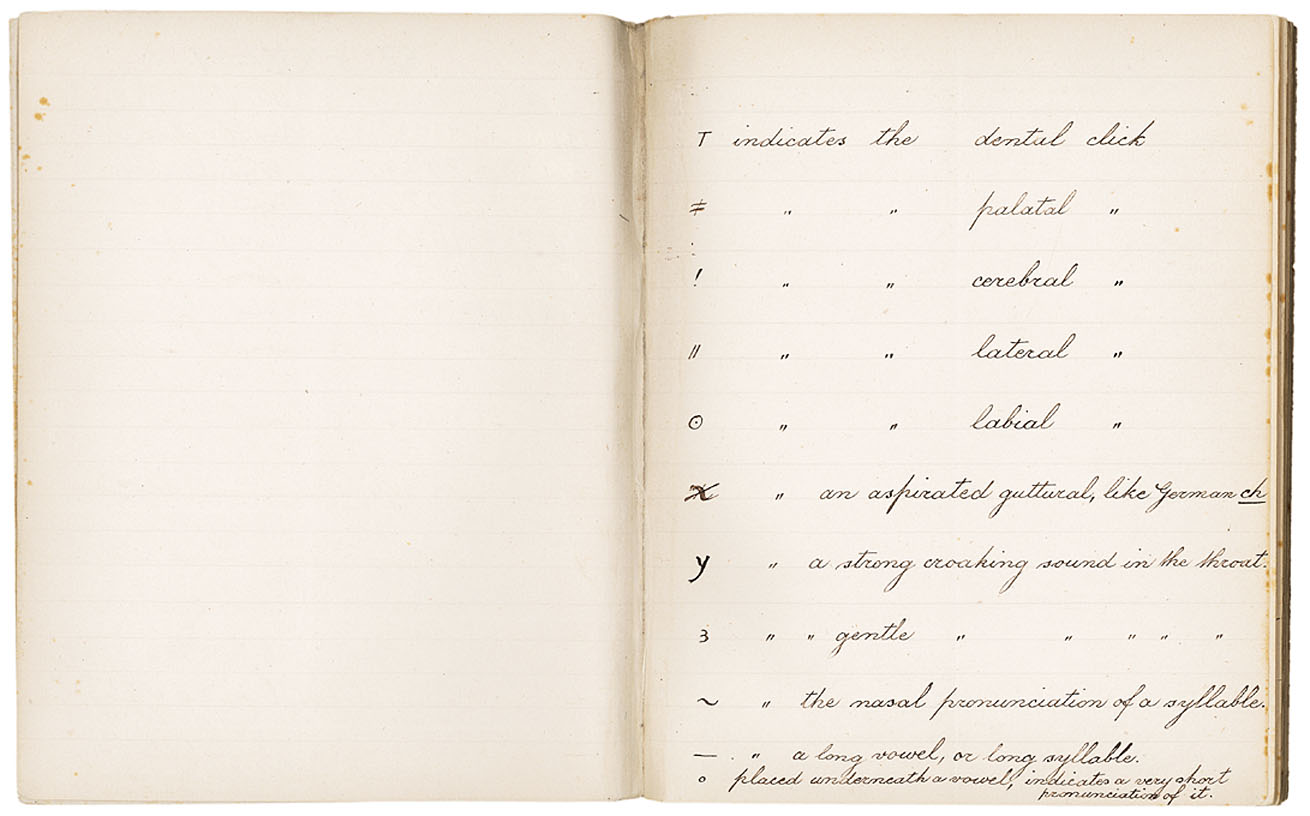 T indicates the dental click
ǂ " " palatal "
! " " cerebral "
ǁ " " lateral "
ʘ " " labial "
χ " an aspirated guttural, like German ch
y " a strong croaking sound in the throat.
ʒ " " gentle " " " " "
~ " the nasal pronunciation of a syllable.
— " a long vowel, or long syllable.
o placed underneath a vowel, indicates a very short
pronunciation of it.